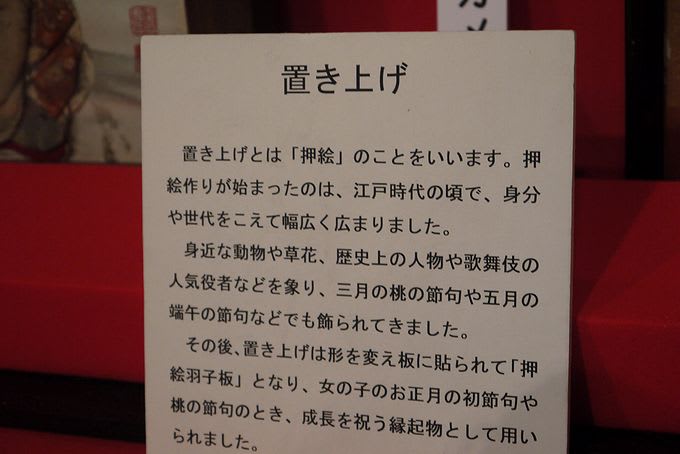 置き上げ
置き上げとは「押絵」のことをいいます。押
絵作りが始まったのは、江戸時代の頃で、身分
や世代をこえて幅広く広まりました。
身近な動物や草花、歴史上の人物や歌舞伎の
人気役者などを象り、三月の桃の節句や五月の
端午の節句などでも飾られてきました。
その後、置き上げは形を変え板に貼られて「押
絵羽子板」となり、女の子のお正月の初節句や
桃の節句のとき、成長を祝う縁起物として用い
られました。